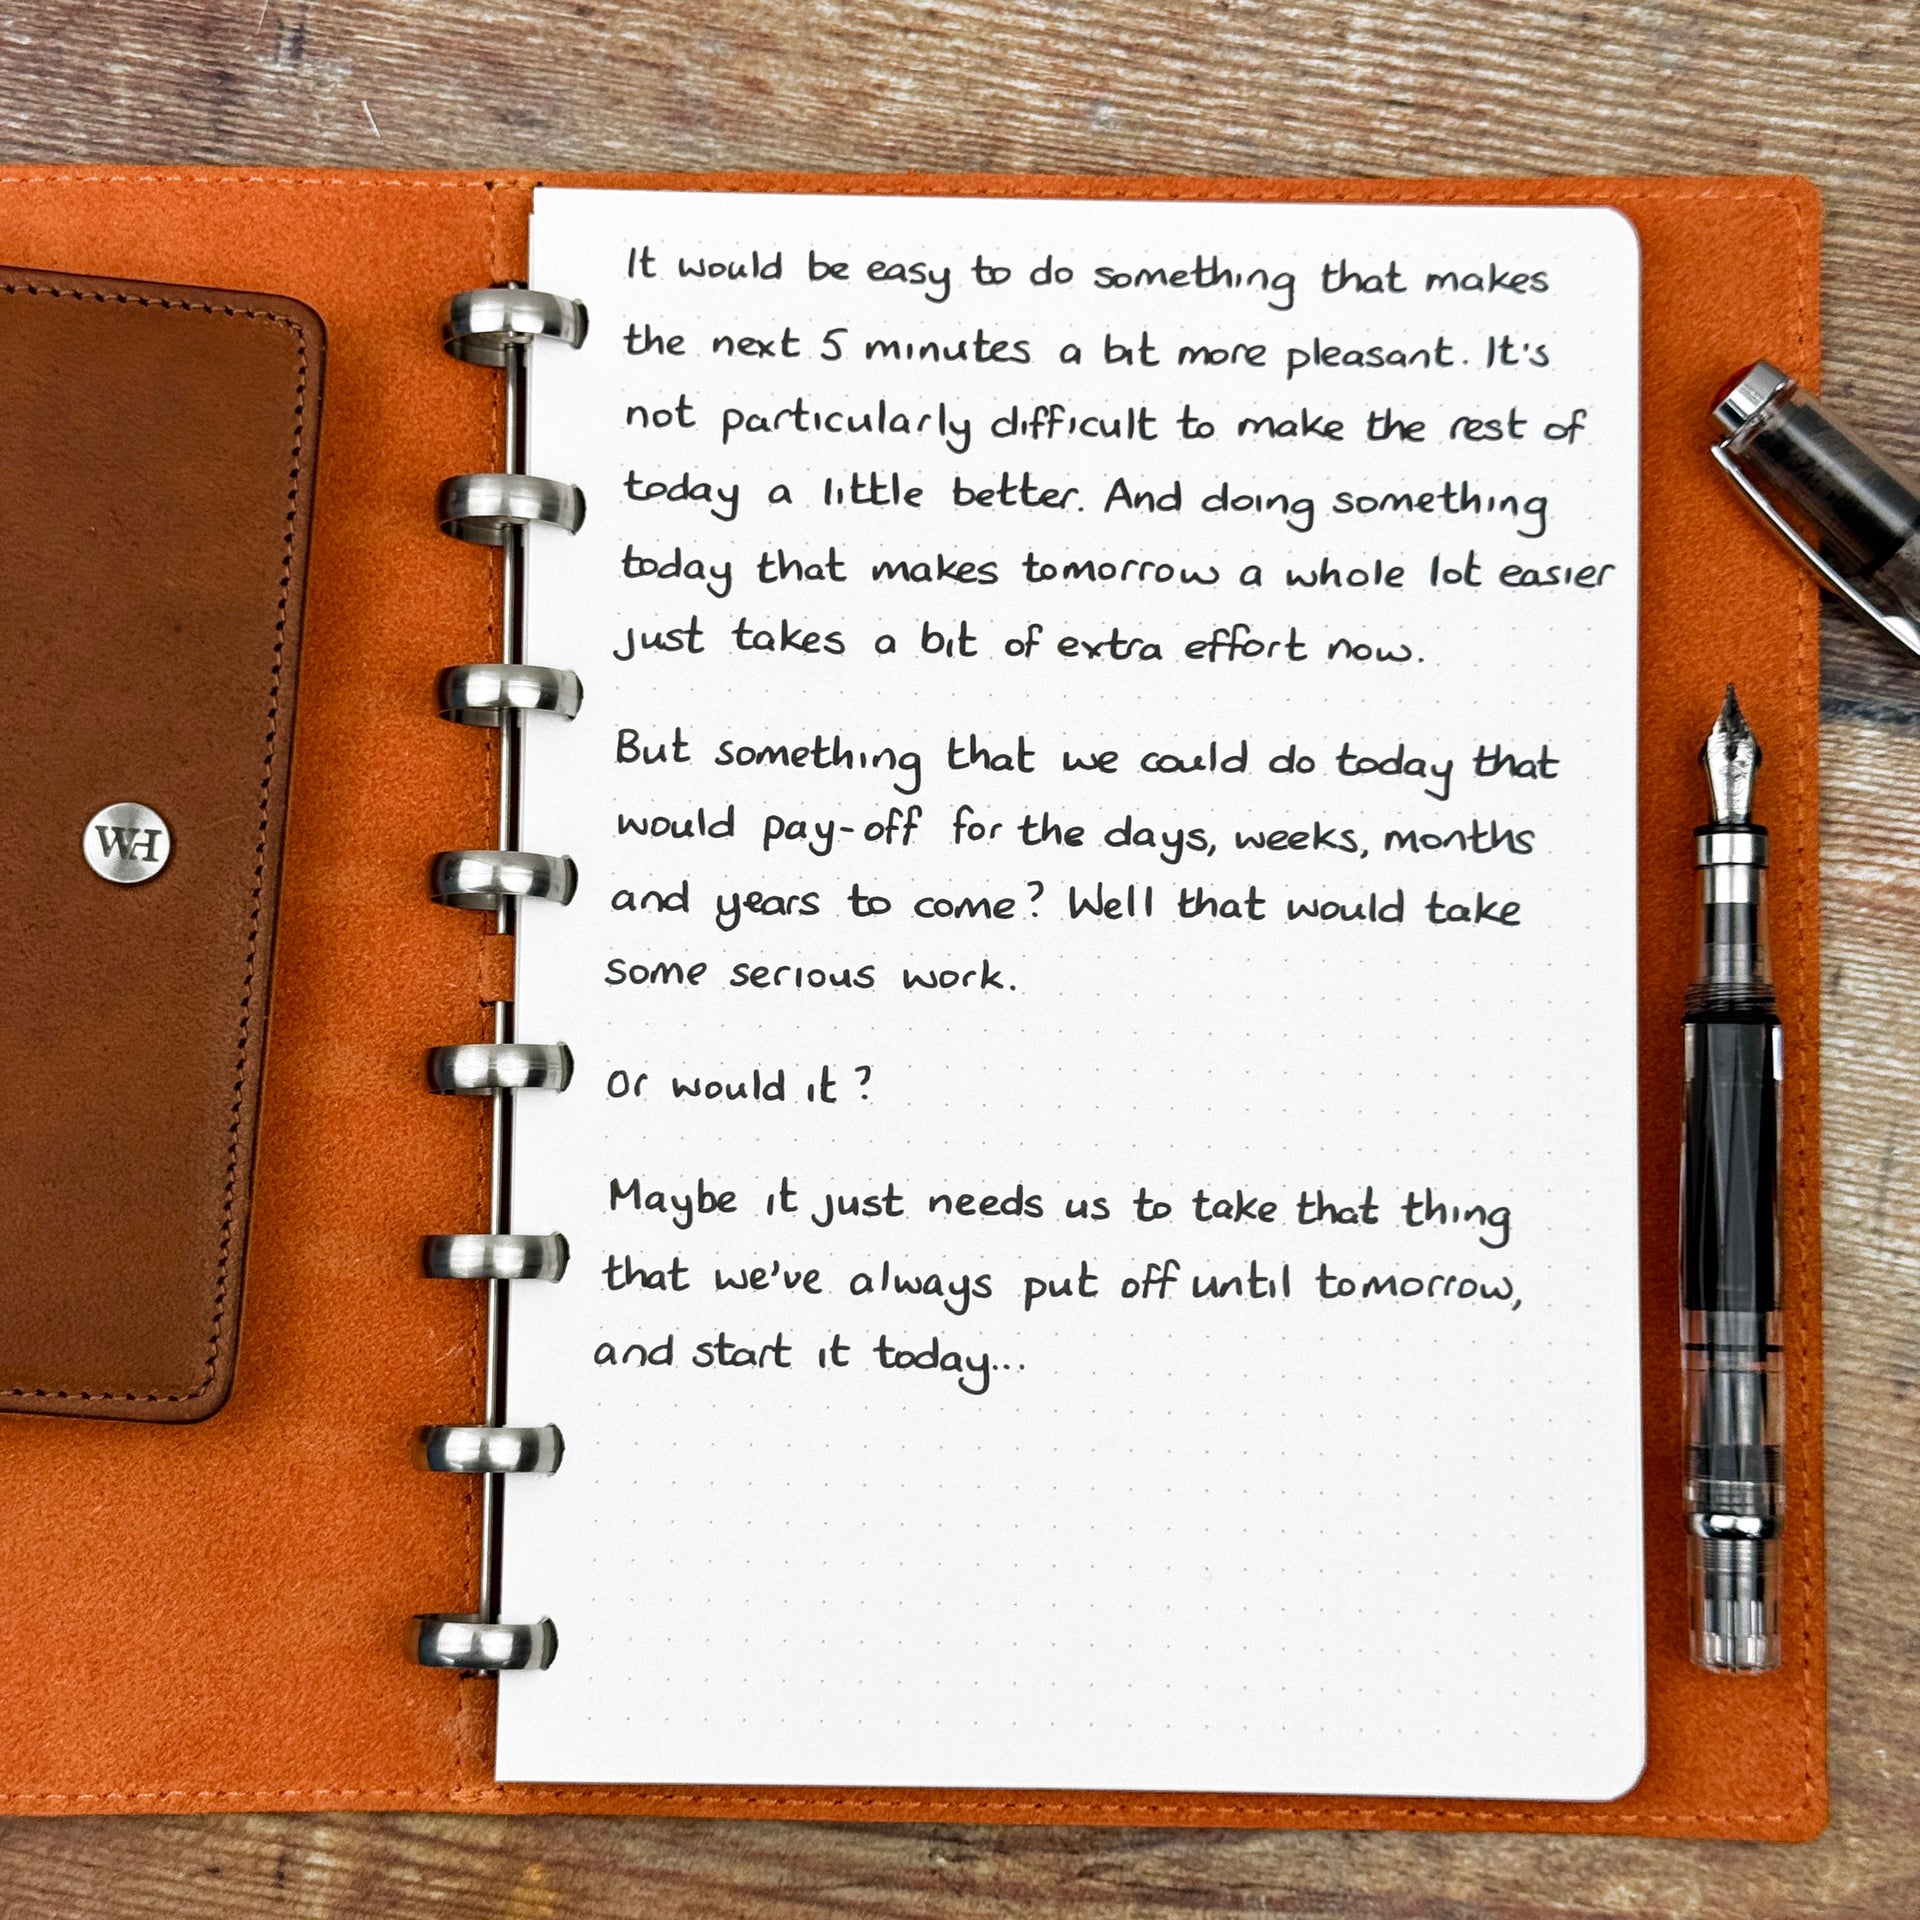 It would be easy to do something that makes
the next 5 minutes a bit more pleasant. It's
not particularly difficult to make the rest of
today a little better. And doing something
today that makes tomorrow a whole lot easier
just takes a bit of extra effort now.
But something that we could do today that
would pay-off for the days, weeks, months
and years to come? Well that would take
some serious work.
Or would it?
Maybe it just needs us to take that thing
that we've always put off until tomorrow,
and start it today...
WH